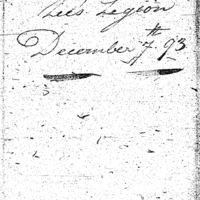 Lee's Legion
December 7th 93